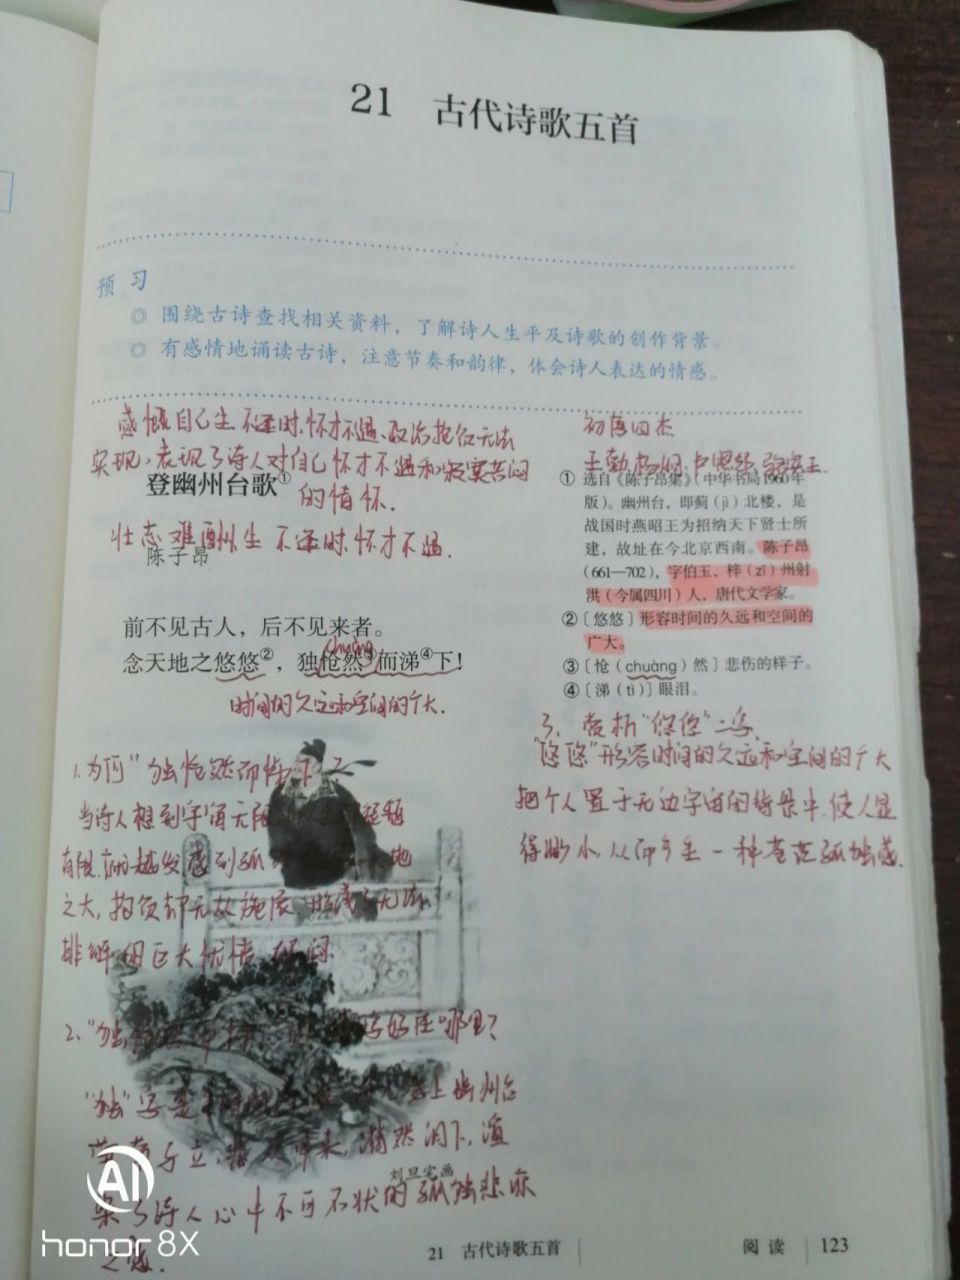 21 古代诗歌五首
预习
◎ 围绕古诗查找相关资料，了解诗人生平及诗歌的创作背景。
◎ 有感情地诵读古诗，注意节奏和韵律，体会诗人表达的情感。
感慨自己生不逢时、怀才不遇、政治抱负无法
实现，表现了诗人对自己怀才不遇和寂寞苦闷
的情怀.
登幽州台歌①
壮志难酬,生不逢时,怀才不遇.
陈子昂
前不见古人，后不见来者。
chuàng
念天地之悠悠②，独怆然③而涕④下！
时间的久远和空间的广大.
初唐四杰
王勃、杨炯、卢照邻、骆宾王.
① 选自《陈子昂集》（中华书局1960年
版）。幽州台，即蓟（jì）北楼，是
战国时燕昭王为招纳天下贤士所
建，故址在今北京西南。陈子昂
（661—702），字伯玉，梓（zǐ）州射
洪（今属四川）人，唐代文学家。
②〔悠悠〕形容时间的久远和空间的
广大。
③〔怆（chuàng）然〕悲伤的样子。
④〔涕（tì）〕眼泪。
3. 赏析"悠悠"二字.
"悠悠"形容时间的久远和空间的广大
把个人置于无边宇宙的背景中,使人显
得渺小,从而产生一种苍茫孤独感.
1.为何"独怆然而涕下"?
当诗人想到宇宙无限
有限,就越发感到孤 地
之大,抱负却无从施展,形成了无法
排解的巨大忧愤
2."独 字好在哪里?
"独"字是 登上幽州台
孑立,悲从中来,潸然泪下,渲
染了诗人心中不可名状的孤独悲凉
之感.
刘旦宅画
21 古代诗歌五首
阅读 123
AI
honor 8X